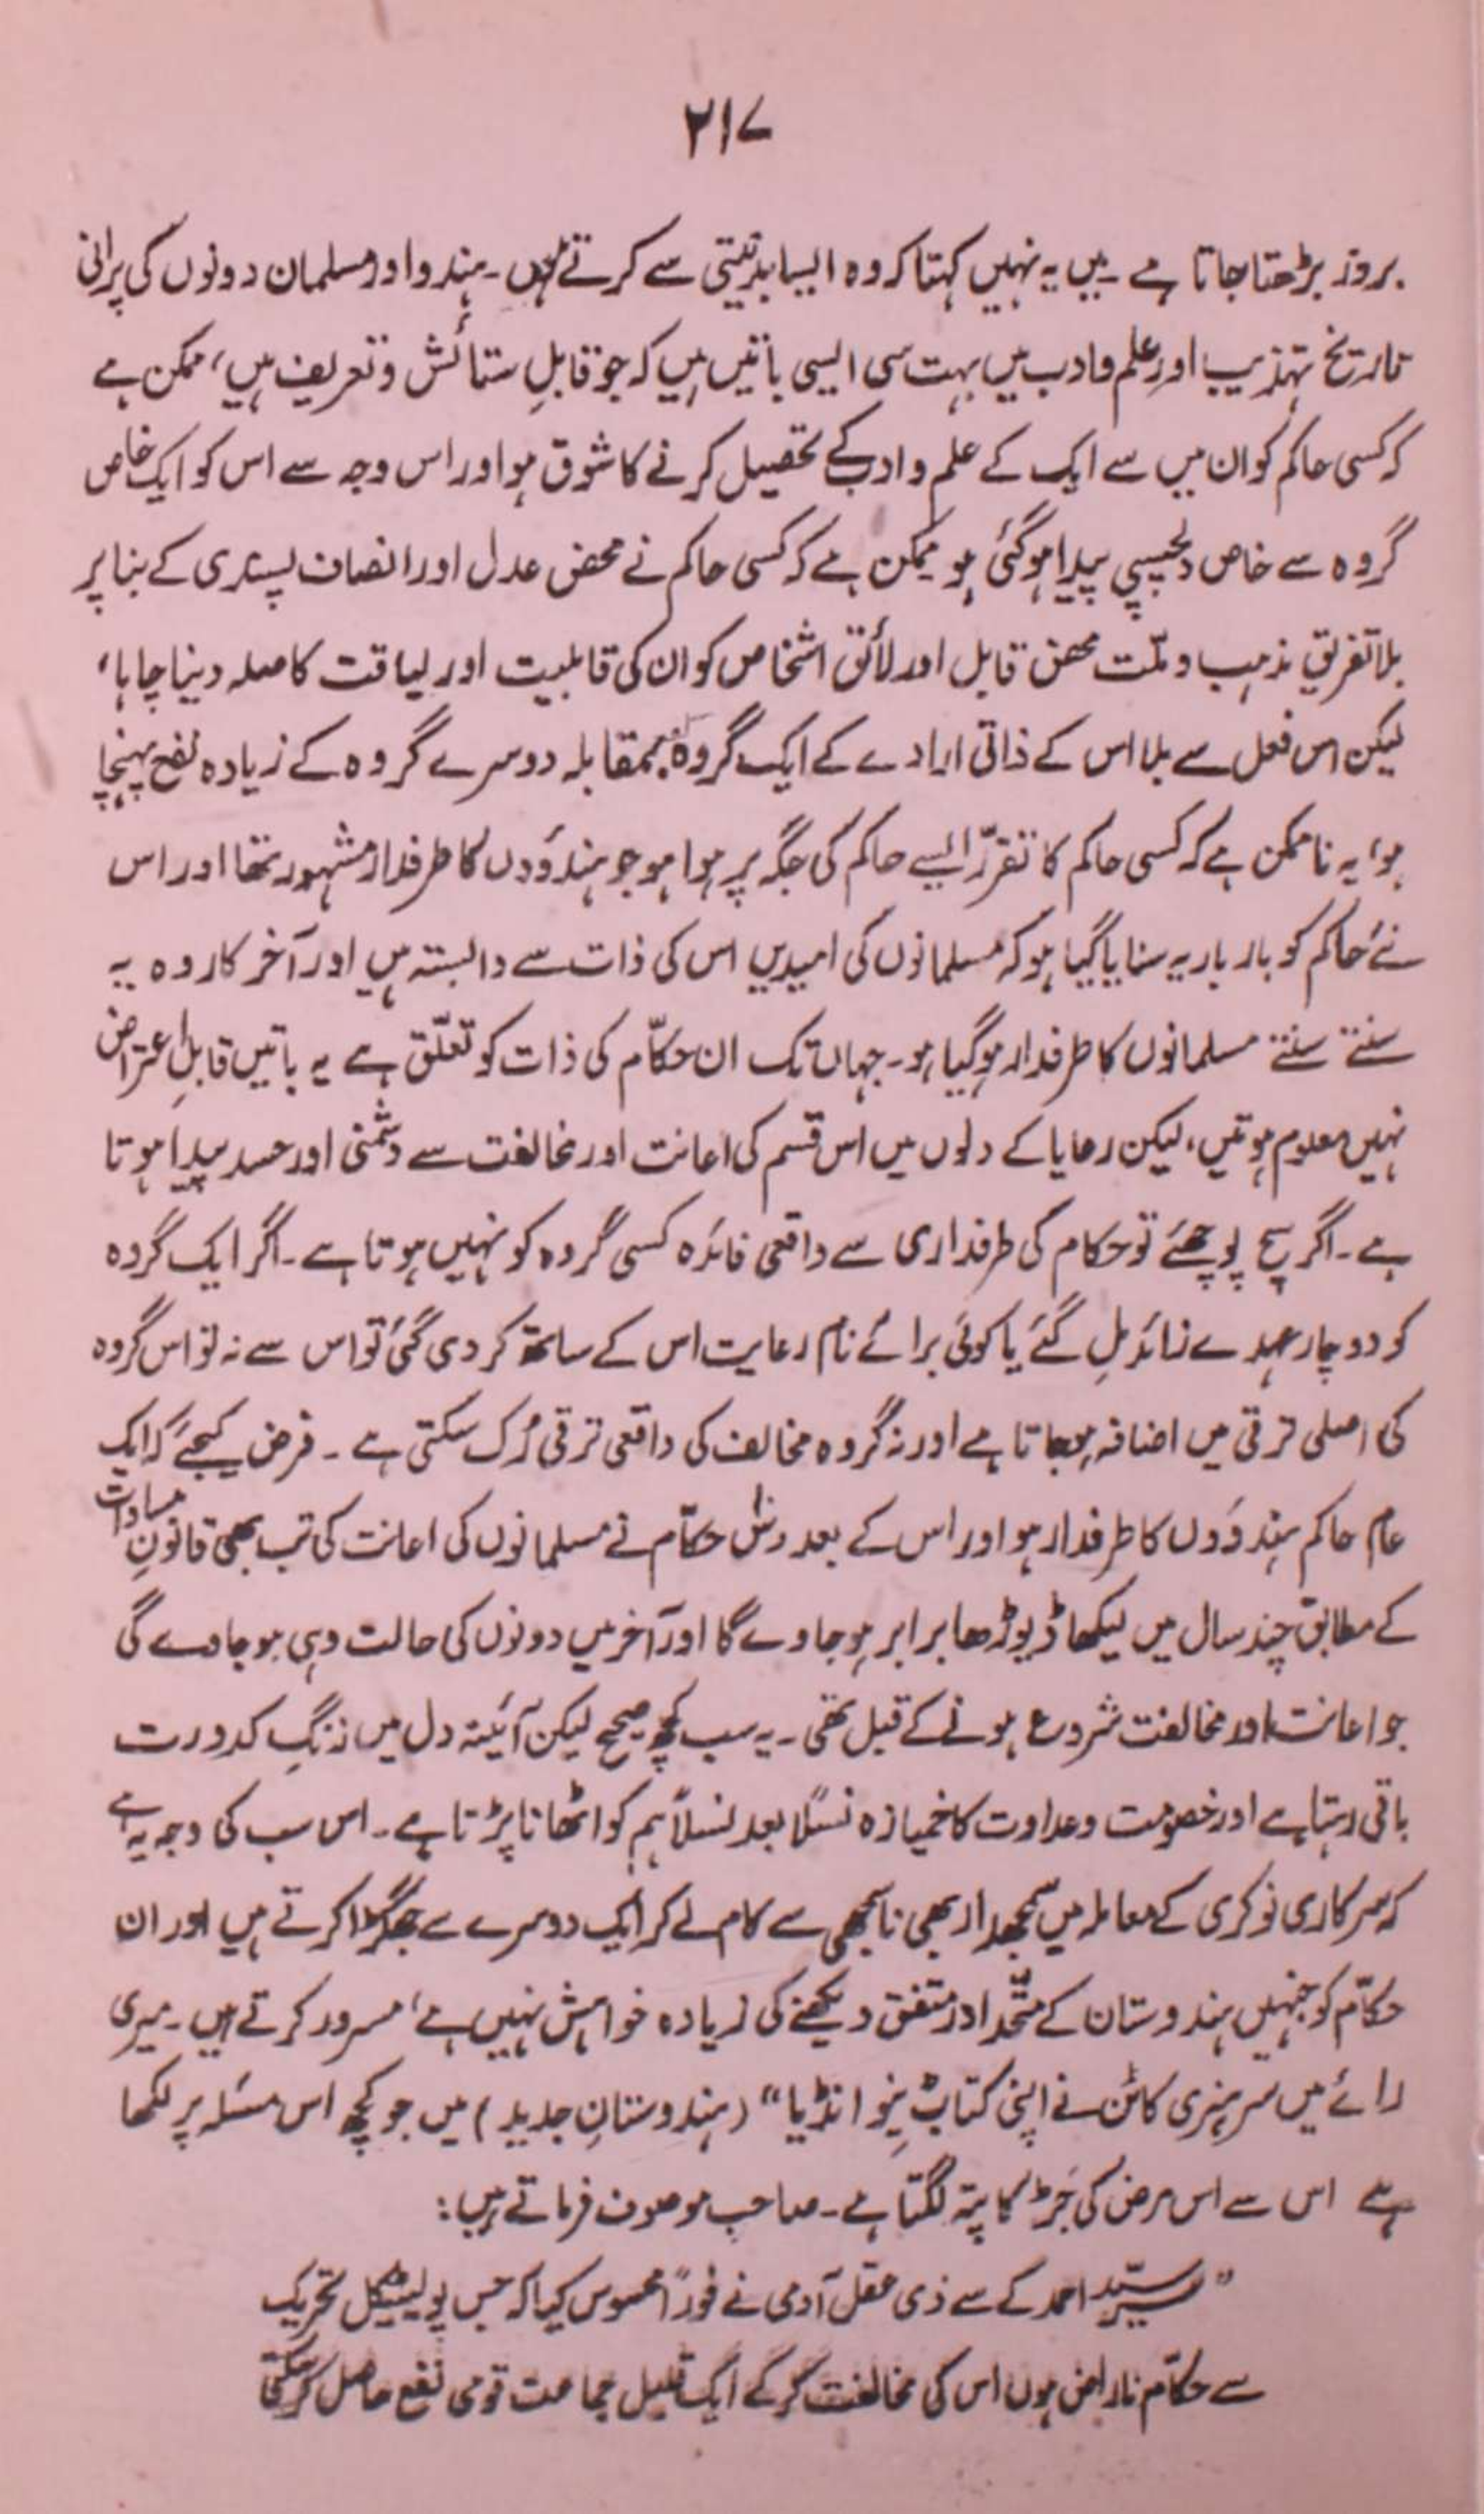 ۲۱۷
بروز بڑھتا جاتا ہے ۔ میں یہ نہیں کہتا کہ وہ ایسا بدنیتی سے کرتے ہیں ۔ ہندو اور مسلمان دونوں کی پرانی
تاریخ تہذیب اور علم و ادب میں بہت سی ایسی باتیں ہیں کہ جو قابلِ ستائش و تعریف ہیں، ممکن ہے
کہ کسی حاکم کو ان میں سے ایک کے علم و ادب کے تحصیل کرنے کا شوق ہو اور اس وجہ سے اس کو ایک خاص
گروہ سے خاص دلچسپی پیدا ہوگئی ہو ممکن ہے کہ کسی حاکم نے محض عدل اور انصاف پسندی کے بنا پر
بلا تفریقِ مذہب و ملّت محض قابل اور لائق اشخاص کو ان کی قابلیت اور لیاقت کا صلہ دینا چاہا،
لیکن اس فعل سے بلا اس کے ذاتی ارادے کے ایک گروہ بمقابلہ دوسرے گروہ کے زیادہ نفع پہنچا
ہو، یہ ناممکن ہے کہ کسی حاکم کا تقرّر ایسے حاکم کی جگہ پر ہوا ہو جو ہندوؤں کا طرفدار مشہور تھا اور اس
نئے حاکم کو بار بار یہ سنایا گیا ہو کہ مسلمانوں کی امیدیں اس کی ذات سے وابستہ ہیں اور آخر کار وہ یہ
سنتے سنتے مسلمانوں کا طرفدار ہوگیا ہو ۔ جہاں تک ان حکّام کی ذات کو تعلّق ہے یہ باتیں قابلِ اعتراض
نہیں معلوم ہوتیں، لیکن رعایا کے دلوں میں اس قسم کی اعانت اور مخالفت سے دشمنی اور حسد پیدا ہوتا
ہے ۔ اگر سچ پوچھئے تو حکام کی طرفداری سے واقعی فائدہ کسی گروہ کو نہیں ہوتا ہے ۔ اگر ایک گروہ
کو دو چار عہدے زائد مل گئے یا کوئی برائے نام رعایت اس کے ساتھ کر دی گئی تو اس سے نہ تو اس گروہ
کی اصلی ترقی میں اضافہ ہوجاتا ہے اور نہ گروہ مخالف کی واقعی ترقی رُک سکتی ہے ۔ فرض کیجئے کہ ایک
عام حاکم ہندوؤں کا طرفدار ہو اور اس کے بعد دس حکّام نے مسلمانوں کی اعانت کی تب بھی قانونِ مساوات
کے مطابق چند سال میں لیکھا ڈیوڑھا برابر ہوجاوے گا اور آخر میں دونوں کی حالت وہی ہوجاوے گی
جو اعانت اور مخالفت شروع ہونے کے قبل تھی ۔ یہ سب کچھ صحیح لیکن آئینہ دل میں زنگِ کدورت
باقی رہتا ہے اور خصومت و عداوت کا خمیازہ نسلًا بعد نسلًا ہم کو اٹھانا پڑتا ہے ۔ اس سب کی وجہ یہ ہے
کہ سرکاری نوکری کے معاملہ میں سمجھدار بھی ناسمجھی سے کام لے کر ایک دوسرے سے جھگڑا کرتے ہیں اور ان
حکّام کو جنہیں ہندوستان کے متّحد اور متفق دیکھنے کی زیادہ خواہش نہیں ہے، مسرور کرتے ہیں ۔ میری
رائے میں سر ہنری کاٹن نے اپنی کتاب "نیو انڈیا" (ہندوستانِ جدید) میں جو کچھ اس مسئلہ پر لکھا
ہے اس سے اس مرض کی جَڑ کا پتہ لگتا ہے ۔ صاحبِ موصوف فرماتے ہیں :
"سرسیّد احمد کے سے ذی عقل آدمی نے فوراً محسوس کیا کہ جس پولیٹیکل تحریک
سے حکّام ناراض ہوں اس کی مخالفت کرکے ایک قلیل جماعت قومی نفع حاصل کرسکتی